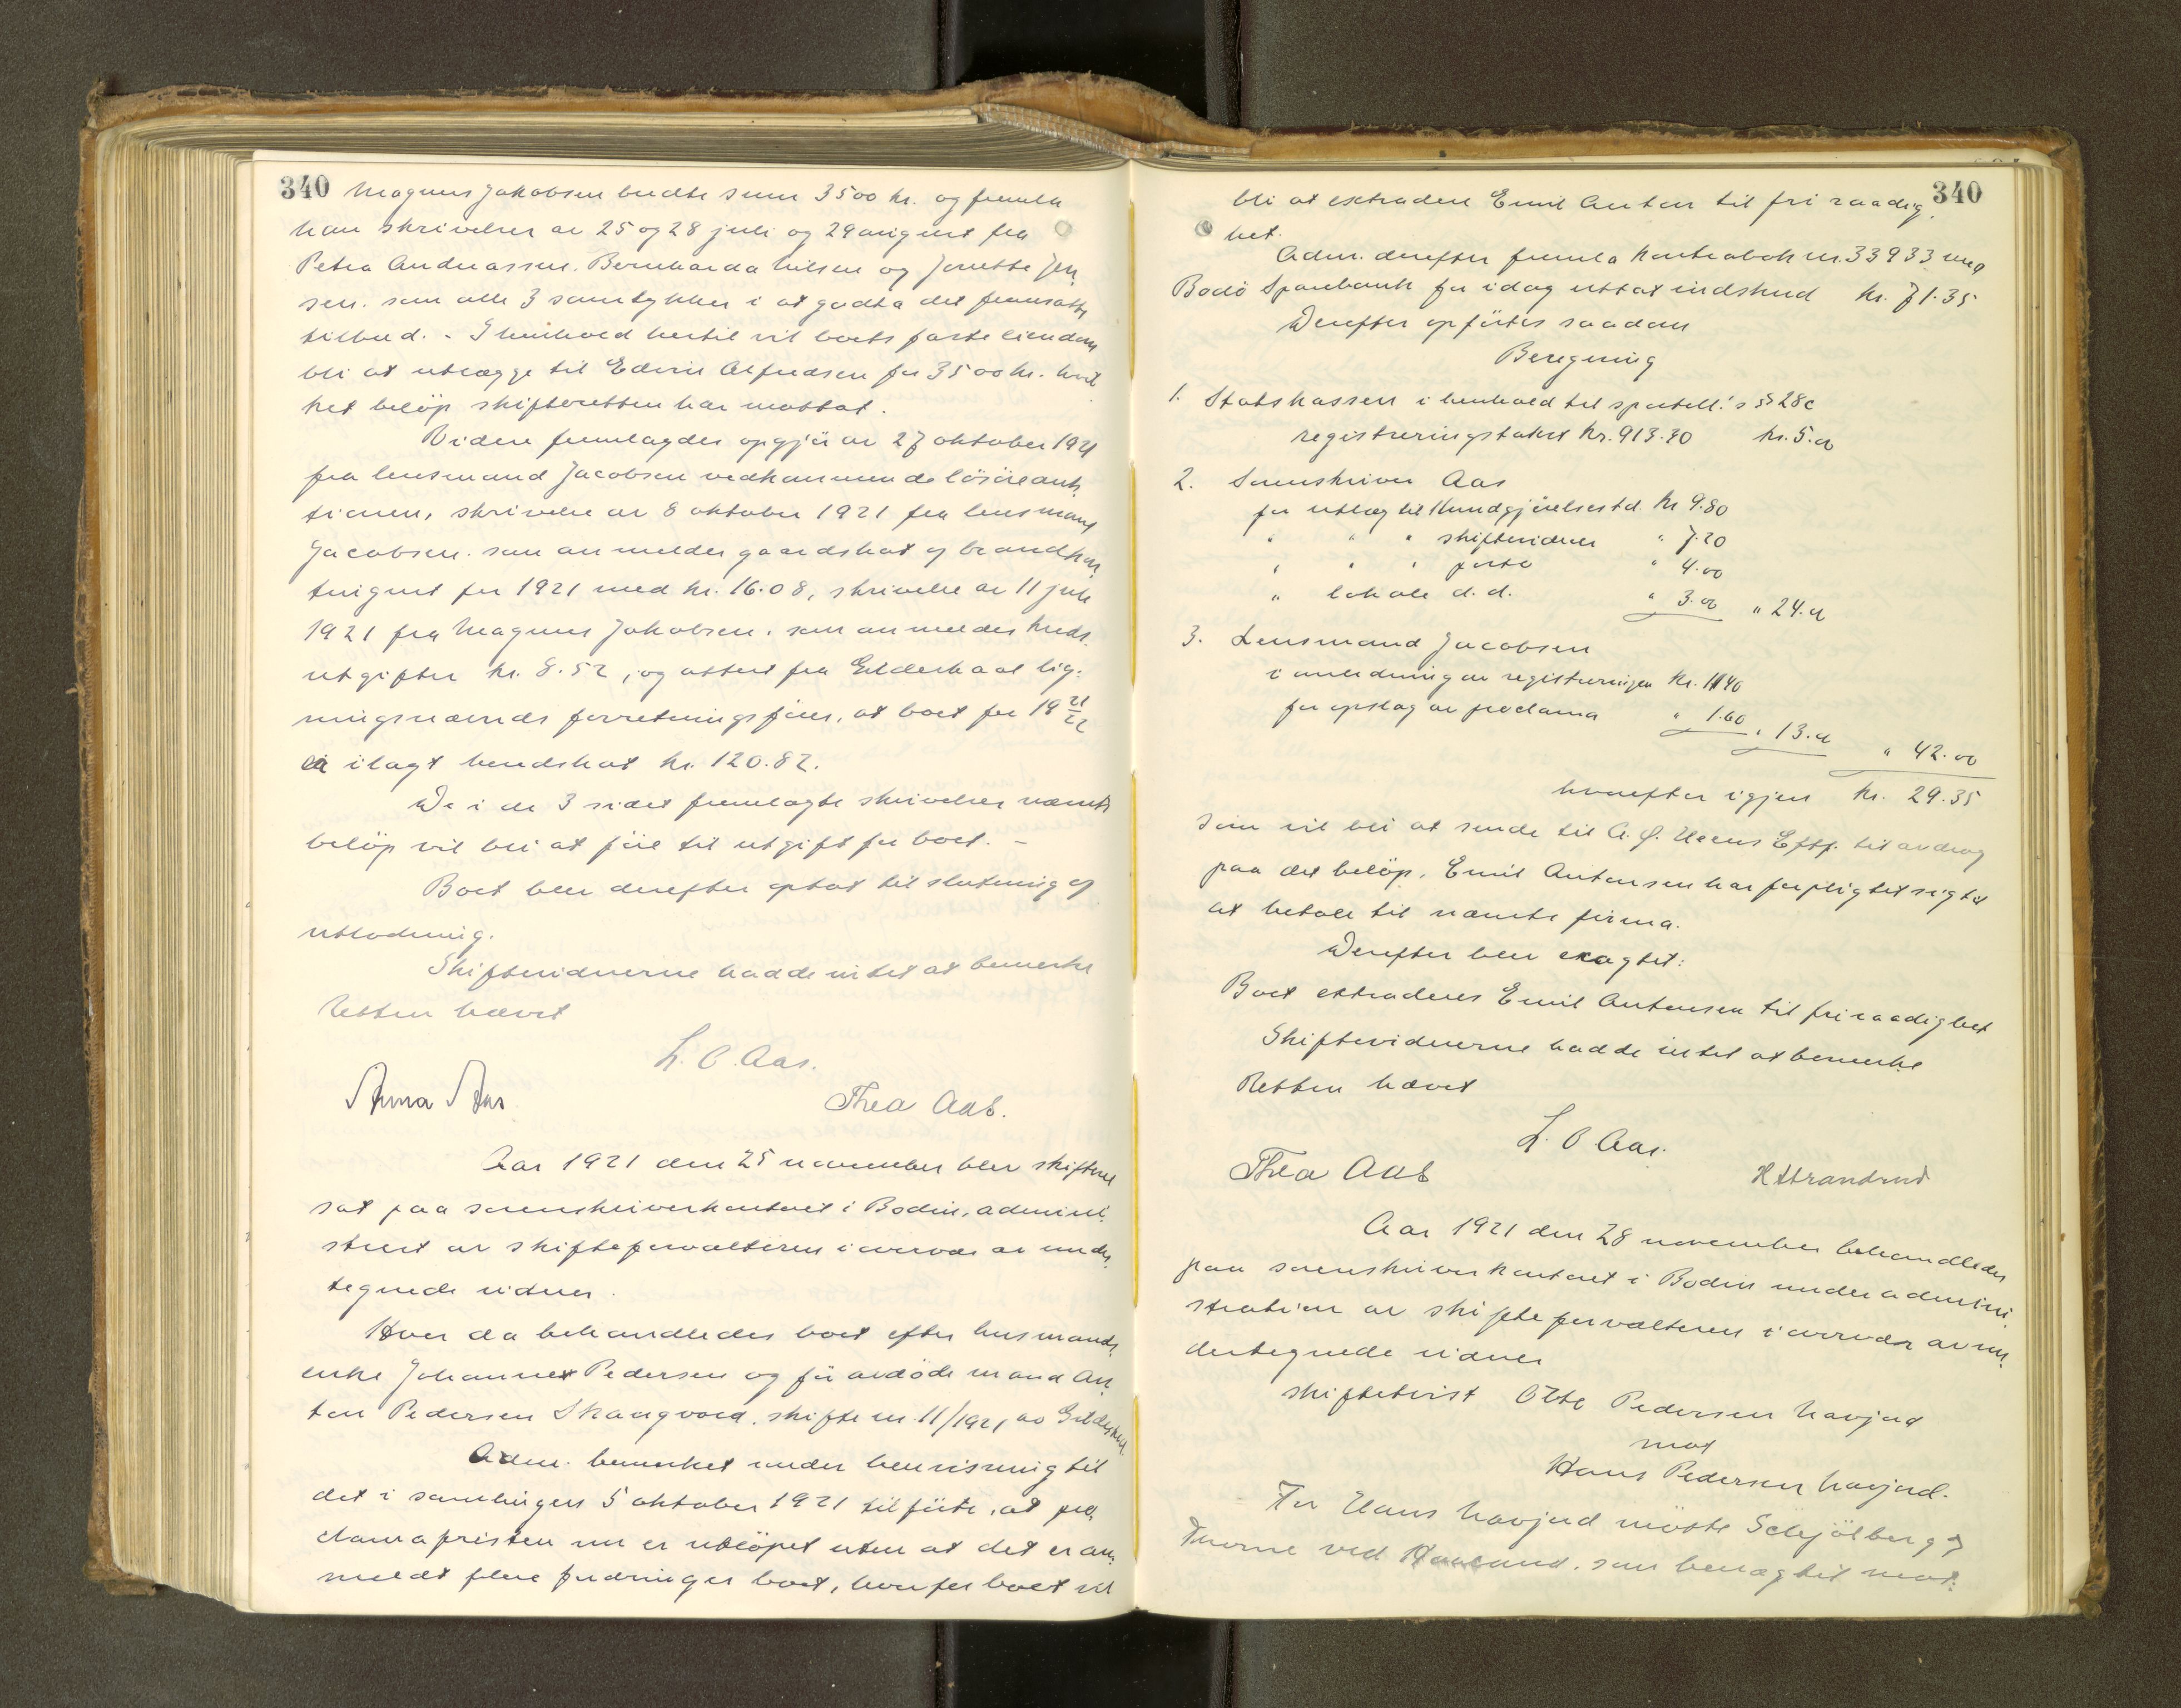 340 Magnus Jakobsen budte sum 3500 kr. og fremla
han skrivelser av 25 og 28 juli og 29 august fra
Petra Andreassen, Bernharda Nilsen og Jonette Jen-
sen. som alle 3 samtykker i at godta det fremsatte
tilbud. - I henhold hertil vil boets faste eiendom
bli at utlægge til Edvin Alfredsen for 3500 kr. hvil
ket beløp skifteretten har mottat.
Videre fremlagdes opgjør av 27 oktober 1921
fra lensmand Jacobsen vedkommende løsøreauk-
tionen, skrivelse av 8 oktober 1921 fra lensmand
Jacobsen. som anmelder gaardskat og brandkon-
tingent for 1921 med kr. 16.08, skrivelse av 11 juli
1921 fra Magnus Jakobsen. som anmelder
utgifter kr. 8.52, og attest fra Gildeskaal lig-
ningsnævnds forretningsfører, at boet for 19 21/22
er ilagt herredskat kr. 120.82.
De i de 3 sidst fremlagte skrivelser nævnte
beløp vil bli at føre til utgift for boet. -
Boet blev derefter optat til slutning og
utlodning.
Skiftevidnerne hadde intet at bemerke
Retten hævet
L. O. Aas.
Anna Aas Thea Aas.
Aar 1921 den 25 november blev skifteret
sat paa sorenskriverkontoret i Bodin, admini-
strert av skifteforvalteren i overvær av under-
tegnede vidner.
Hvor da behandledes boet efter husmands-
enke Johanna Pedersen og før avdøde mand An-
ton Pedersen Skaugvold. skifte nr. 11/1921 av Gildeskaal.
Adm. bemerket under henvisning til
det i samlingen 5 oktober 1921 tilførte, at pro-
clamafristen nu er utløpet uten at det er an-
meldt flere fordringer i boet, hvorfor boet vil
340
bli at extradere Emil Anton til fri raadig-
het.
Adm. derefter fremla kontrabok nr. 33933 med
Bodø Sparebank for idag uttat indskud kr. 71.35
Derefter opførtes saadan
Beregning
1. Statskassen i henhold til sportell.'s § 28c
registreringstakst kr. 913.30 kr. 5.00
2. Sorenskriver Aas
for utlæg til Kundgjørelsestd. kr 9.80
" " " skiftevidner " 7.20
" " " porto " 4.00
" lokale d.d. " 3.00 " 24.00
3. Lensmand Jacobsen
i anledning av registreringen kr. 11.40
for opslag av proclama " 1.60 " 13.00 " 42.00
hvorefter igjen kr. 29.35
som vil bli at sende til A. J. Eftf. til avdrag
paa det beløp, Emil Antonsen har forpligtet sig til
at betale til nævnte firma.
Derefter blev eragtet:
Boet extraderes Emil Antonsen til fri raadighet
Skiftevidnerne hadde intet at bemerke
Retten hævet
L. O Aas.
Thea Aas H Strandrud
Aar 1921 den 28 november behandledes
paa sorenskriverkontoret i Bodin under admini-
stration av skifteforvalteren i overvær av un-
dertegnede vidner
skiftetvist Otto Pedersen Navjord
mot
Hans Pedersen Navjord.
For Hans Navjord møtte Schjölberg &
Thorne ved Haaland, som benægtet mot-